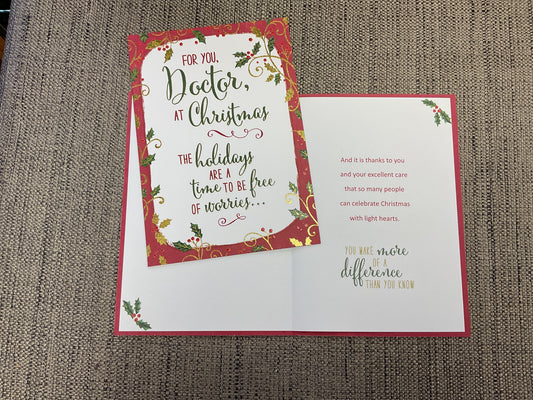 FOR YOU,
Doctor,
AT Christmas
THE holidays
ARE A
time TO BE free
OF worries...
And it is thanks to you
and your excellent care
that so many people
can celebrate Christmas
with light hearts.
YOU MAKE more
OF A
difference
THAN YOU KNOW